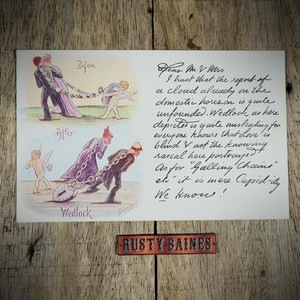 Before
After
Wedlock
Dear Mr & Mrs
I trust that the report of
a cloud already on the
domestic horison is quite
unfounded. Wedlock as here
depicted is quite misleading for
everyone knows that Love is
blind & not the knowing
rascal here portrayed
As for "Galling Chains"
etc" it is mere Cupid-ity
We know!
RUSTY BAINES